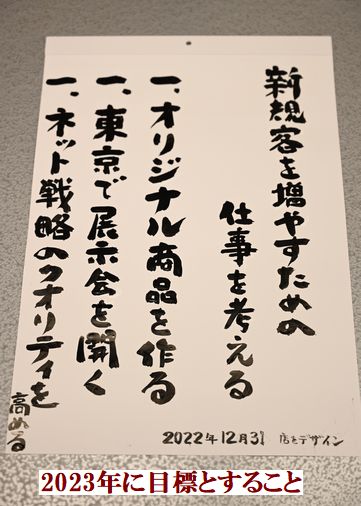 新規客を増やすための
仕事を考える
一、オリジナル商品を作る
一、東京で展示会を開く
一、ネット戦略のクオリティを
高める
2022年12月31 店をデザイン
2023年に目標とすること